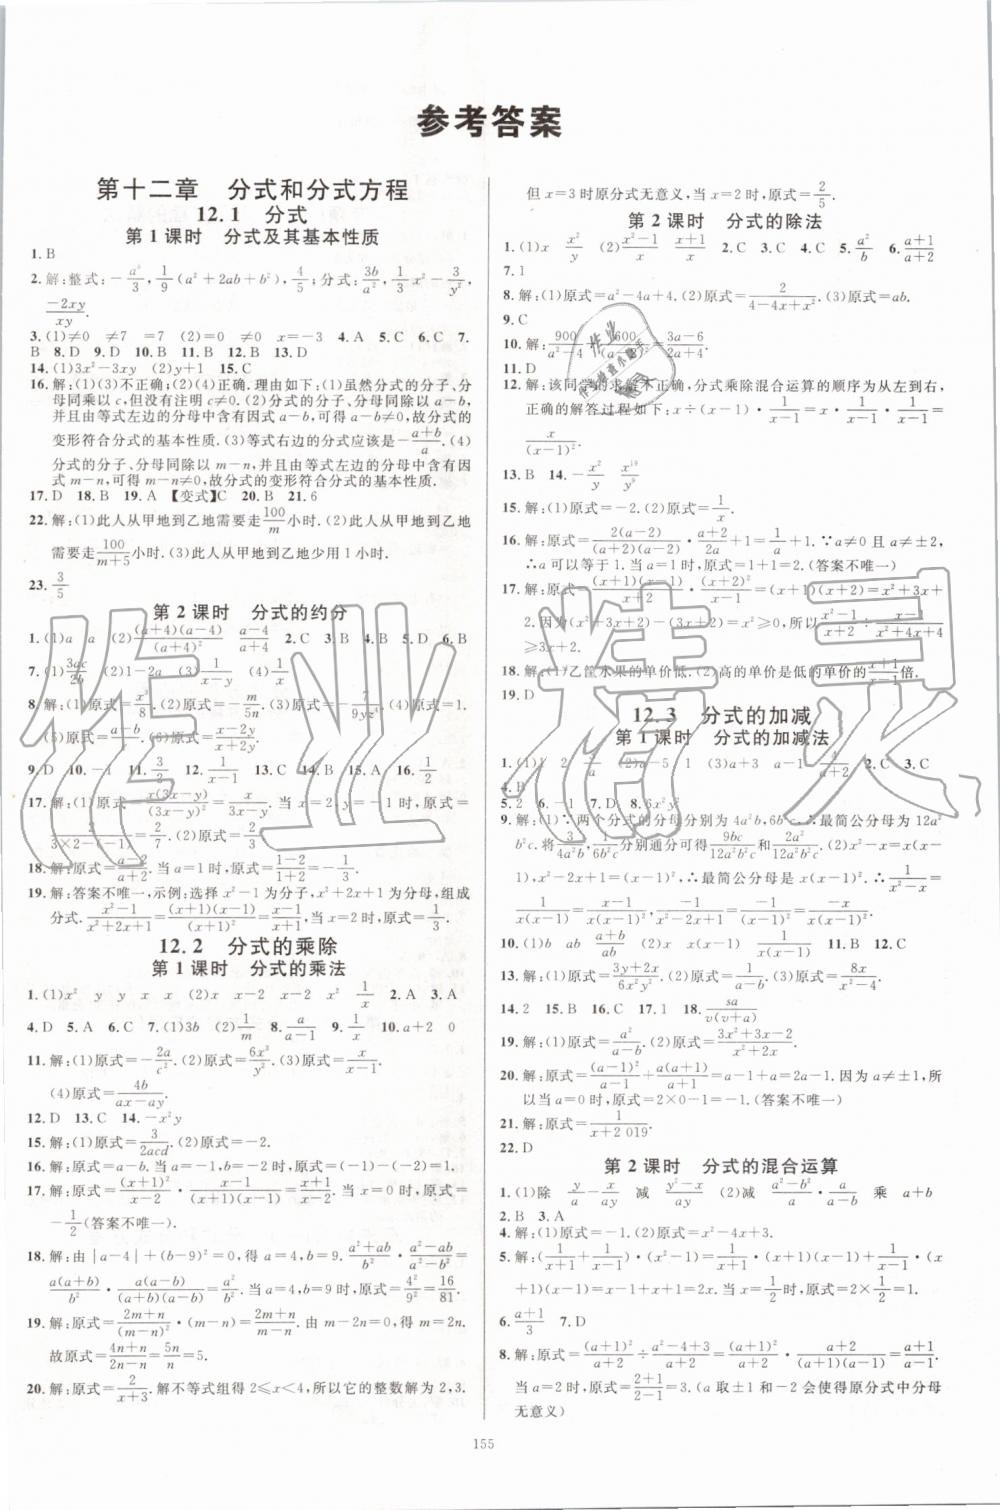 参考答案
第十二章　分式和分式方程
12.1　分式
第1课时　分式及其基本性质
1. B
2. 解:整式:-a²/3, 1/9(a²+2ab+b²), 4/5; 分式: 3b/a², 1/3x²-3/y²,
-2xy/xy.
3. (1)≠0　≠7　=7　(2)=0　≠0　x=-3　4. A　5. C　6. C　7.
B　8. D　9. D　10. B　11. B　12. B　13. D
14. (1)3x²-3xy　(2)y+1　15. C
16. 解:(1)(3)不正确;(2)(4)正确. 理由如下:(1)虽然分式的分子、分
母同乘以c,但没有注明c≠0. (2)分式的分子、分母同除以a-b,
并且由等式左边的分母中含有因式a-b,可得a-b≠0,故分式的
变形符合分式的基本性质. (3)等式右边的分式应该是-(a+b)/a. (4)
分式的分子、分母同除以m-n,并且由等式左边的分母中含有因
式m-n,可得m-n≠0,故分式的变形符合分式的基本性质.
17. D　18. B　19. A　【变式】C　20. B　21. 6
22. 解:(1)此人从甲地到乙地需要走100/m小时. (2)此人从甲地到乙地
需要走100/(m+5)小时. (3)此人从甲地到乙地少用1小时.
23. 3/5
第2课时　分式的约分
1. (1)a　a　(2)(a+4)(a-4)/(a+4)²　(a-4)/(a+4)　2. C　3. B　4. D　5. D　6. B
7. (1)3ac/2b　(2)1-2a　(3)1/(x-y)　(4)
8. 解:(1)原式=x³/8. (2)原式=-m/5n. (3)原式=-7/9yz⁴. (4)原式=1.
(5)原式=(a-b)/. (6)原式=(x-2y)/(x+2y).
9. D　10. -1　11. 3/2　12. 1/(x-1)　13. C　14. B　15. A　16. 1/2
17. 解:(1)原式=x(3x-y)/(3x-y)²=x/(3x-y). 当x=2,y=-1时,原式=
2/(3×2-(-1))=2/7. (2)原式=
18. 解:原式=(a-2)/(a+2). 当a=1时,原式=(1-2)/(1+2)=-1/3.
19. 解:答案不唯一,示例:选择x²-1为分子,x²+2x+1为分母,组成
分式. (x²-1)/(x²+2x+1)=(x+1)(x-1)/(x+1)²=(x-1)/(x+1),当x=2时,原式=1/3.
12.2　分式的乘除
第1课时　分式的乘法
1. (1)x²　y　y　x　x　(2)x　x-2　x-2　x²　1/x　2. A　3. A
4. D　5. A　6. C　7. (1)3b　(2)1/m　8. a/(a-1)　9. 1/x　10. a+2　0
11. 解:(1)原式=-2a/c². (2)原式=6x³/y². (3)原式=1/x.
(4)原式=4b/(ax-ay).
12. D　13. C　14. -x²y
15. 解:(1)原式=3/2acd. (2)原式=-2.
16. 解:原式=a-b. 当a=-1,b=-2时,原式=-1-(-2)=1.
17. 解:原式=(x+1)²/(x-2)·(x-1)/(x+1)(x-1)=(x+1)/(x-2). 当x=0时,原式=
-1/2(答案不唯一)
18. 解:由|a-4|+(b-9)²=0,得a=4,b=9. (a²+ab)/b²·(a²-ab)/(a²-b²)=
a(a+b)/b²·a(a-b)/(a+b)(a-b)=a²/b². 当a=4,b=9时,原式=4²/9²=16/81.
19. 解:原式=(2m+n)/(m-n)²·(m-n)=(2m+n)/(m-n). 由m-2n=0,得m=2n.
故原式=(4n+n)/(2n-n)=5n/n=5.
20. 解:原式=2/(x+3). 解不等式组得2≤x<4,所以它的整数解为2,3.
但x=3时原分式无意义,当x=2时,原式=2/5.
第2课时　分式的除法
1. (1)x　x²/y　(2)(x²-1)/x　(x+1)/x　2. C　3. C　4. C　5. a²/b　6. (a+1)/(a+2)
7. 1
8. 解:(1)原式=a²-4a+4. (2)原式=2/(4-4x+x²). (3)原式=ab.
9. C
10. 解:900/(a²-4)600/=(3a-6)/(2a+4).
11. D
12. 解:该同学的求解不正确,分式乘除混合运算的顺序为从左到右,
正确的解答过程如下:x÷(x-1)·1/(x-1)=x·1/(x-1)·1/(x-1)=
x/(x-1)².
13. B　14. -x²/y　x¹⁹/y⁹
15. 解:(1)原式=. (2)原式=1/x.
16. 解:原式=2(a-2)/(a+2)(a-2)·(a+2)/2a+1=1/a+1. ∵a≠0且a≠±2,
∴a可以等于1. 当a=1时,原式=1+1=2. (答案不唯一)
17. 解:原式=(x+1)(x-1)/(x+2)··(x+1)=(x+1)(x+2)=x²+3x+
2. 因为(x²+3x+2)-(3x+2)=x²≥0,所以(x²-1)/(x+2)÷(x-1)/
≥3x+2.
18. 解:(1)乙筐水果的单价低. (2)高的单价是低的单价的(x+1)/(x-1)倍.
19. D
12.3　分式的加减
第1课时　分式的加减法
1. (1)1　2　/a　(2)a-5　1　(3)a+3　a-1　4/(a+2)　2. C　3. C
4. B
5. 2　6. -1　7. D　8. 6x²y²
9. 解:(1)∵两个分式的分母分别为4a²b,6b²c,∴最简公分母为12a²
b²c. 3/4a²b, 1/6b²c分别通分可得9bc/12a²b²c和2a²/12a²b²c. (2)∵x²-x=x(x-
1),x²-2x+1=(x-1)²,∴最简公分母是x(x-1)². ∴1/(x²-x)=
1/x(x-1)=(x-1)/x(x-1)², 1/(x²-2x+1)=1/(x-1)²=x/x(x-1)².
10. (1)b　ab　(a+b)/ab　(2)x　x(x-1)　1/x(x-1)　11. B　12. C
13. 解:(1)原式=(3y+2x)/6x²y². (2)原式=1/(a-b). (3)原式=8x/(x²-4).
14. 2　15. B　16. C　17. 1　18. sa/v(v+a)
19. 解:(1)原式=a²/(a-b). (2)原式=(3x²+3x-2)/(3x²-3x).
20. 解:原式=(a-1)²/(a-1)+a(a+1)/(a+1)=a-1+a=2a-1. 因为a≠±1,所
以当a=0时,原式=2×0-1=-1. (答案不唯一)
21. 解:原式=1/(x+2 019).
22. D
第2课时　分式的混合运算
1. (1)除　y/a-x/ay　减　(y²-x)/ay　(2)减　(a²-b²)/a·a/(a-b)　乘　a+b
2. B　3. A
4. 解:(1)原式=-1. (2)原式=x²-4x+3.
5. 解:(1/(x+1)+1/(x-1))·(x²-1)=1/(x+1)·(x+1)(x-1)+1/(x-1)·(x
+1)(x-1)=x-1+x+1=2x. 当x=1/2时,原式=2×1/2=1.
6. (a+1)/3　7. D
8. 解:原式=(a+1)²/(a+2)÷(a²-4+3)/(a+2)=(a+1)²/(a+2)·(a+2)/(a+1)(a-1)=(a+1)/(a-1).
当a=2时,原式=(2+1)/(2-1)=3. (a取±1和-2会使得原分式中分母
无意义)
155
作业精灵